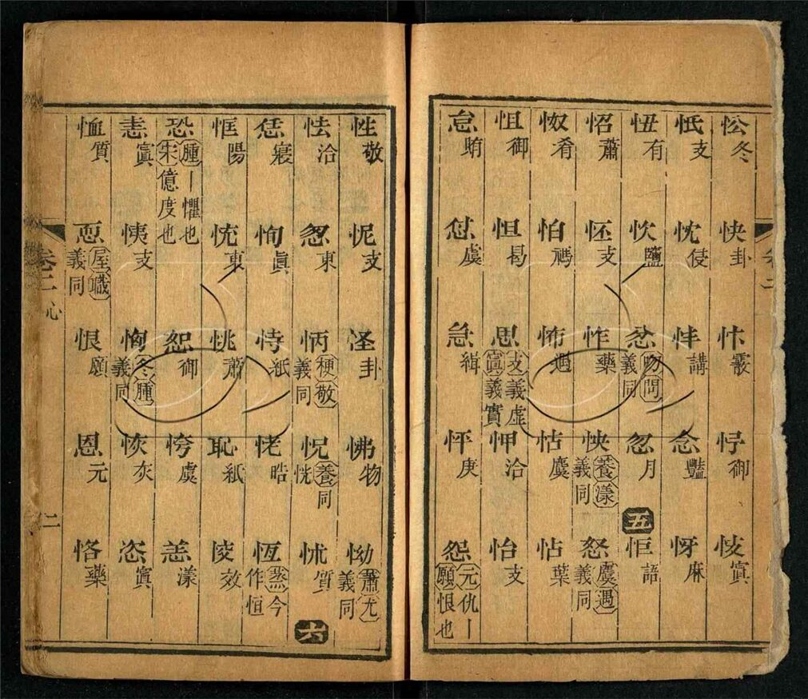 忪冬 快卦 忭霰 忬御 忮寘
忯支 忱侵 講 念豔 麻
忸有 忺鹽 忿吻問義同 忽月 五 怇語
怊蕭 怌支 怍藥 怏養漾義同 怒麌遇義同
怓肴 怕禡 怖遇 怙麌 怗葉
怚御 怛曷 思支義虛寘義實 洽 怡支
怠賄 怤虞 急緝 怦庚 怨元仇丨願恨也
卷二
性敬 怩支 怪卦 怫物 怮蕭尤義同
怯洽 怱東 怲梗敬義同 怳養恍同 怵質 六
恁寢 恂真 恃紙 恅皓 恆蒸今作恒
恇陽 東 恌蕭 恥紙 恔效
恐腫丨懼也宋億度也 恕御 恗虞 恙漾
恚寘 恞支 恟冬腫義同 恢灰 恣寘
恤質 恧屋職義同 恨願 恩元 恪藥
卷二 心 二